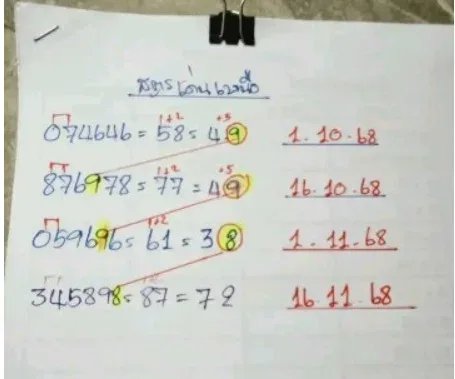 สูตรเด่นเหนือ
1+2 +3
074646 = 58 = 49 1.10.68
1+2 +5
876978 = 77 = 49 16.10.68
1+2
059696 = 61 = 38 1.11.68
345898 = 87 = 72 16.11.68